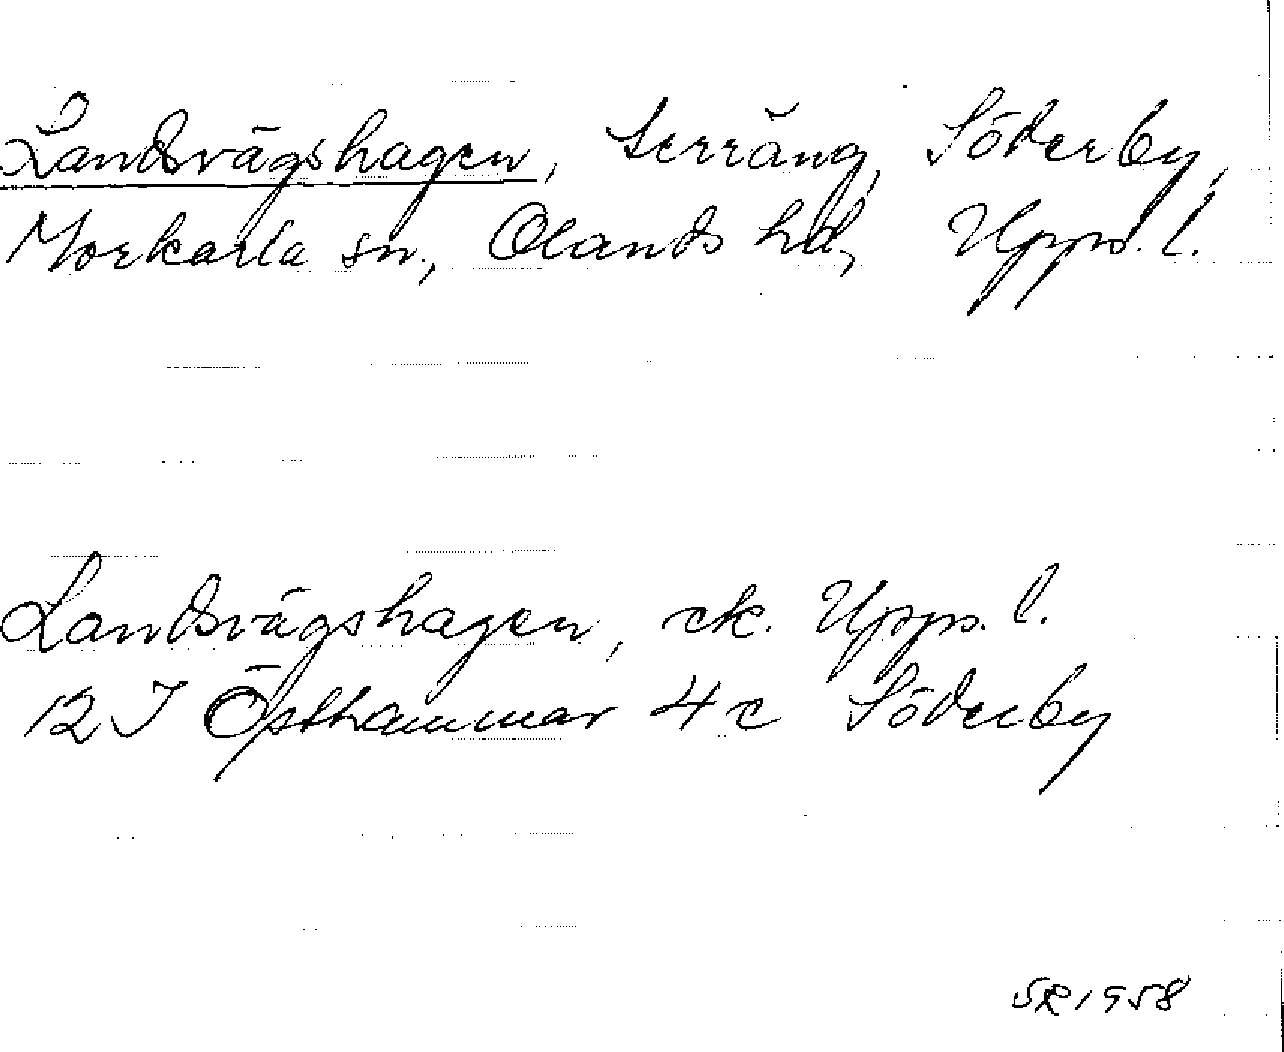 Landsvägshagen, terräng, Söderby,
Morkarla sn., Olands hd, Upps. l.
Landsvägshagen, ek. Upps. l.
12 I Östhammar 4 c Söderby
SR 1958